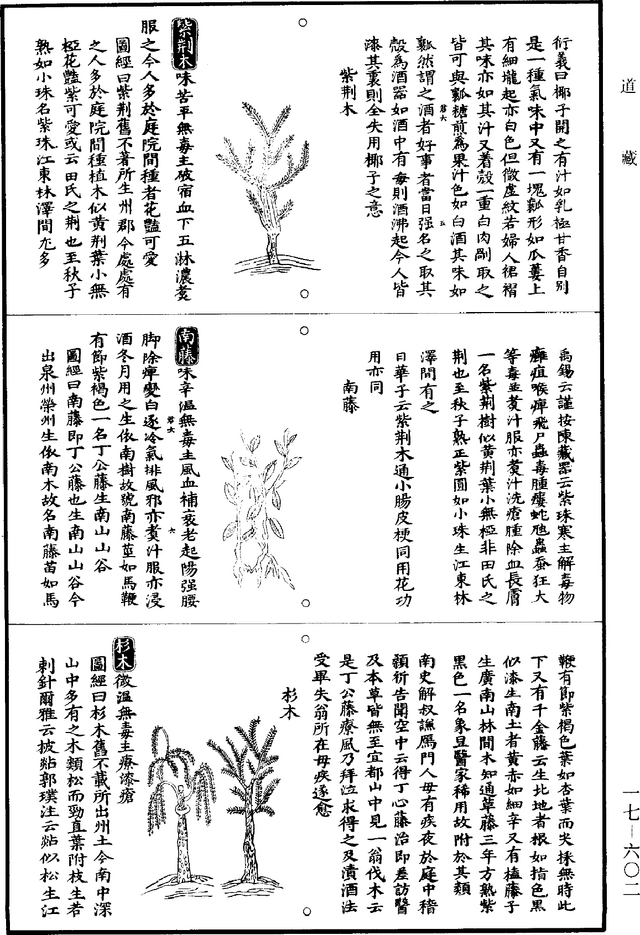 道藏
衍義曰椰子開之有汁如乳極甘香自別
是一種氣味中又有一塊瓤形如瓜蔞上
有細壠起亦白色但微虛紋若婦人裙褶
其味亦如其汁又着殼一重白肉剮取之
皆可與瓤糖煎為果汁色如白酒其味如
瓢然謂之酒者好事者當日强名之取其
殼為酒器如酒中有毒則酒沸起今人皆
漆其裏則全失用椰子之意
紫荆木
紫荆木味苦平無毒主破宿血下五淋濃煑
服之今人多於庭院間種者花豔可愛
圖經曰紫荆舊不著所生州郡今處處有
之人多於庭院間種植木似黄荆葉小無
椏花豔紫可愛或云田氏之荆也至秋子
熟如小珠名紫珠江東林澤間尤多
禹錫云謹按陳藏器云紫珠寒主解毒物
癰疽喉痺飛尸蟲毒腫瘻蛇虺蟲蚕狂犬
等毒並煑汁服亦煑汁洗瘡腫除血長膚
一名紫荆樹似黄荆葉小無椏非田氏之
荆也至秋子熟正紫圓如小珠生江東林
澤間有之
日華子云紫荆木通小腸皮梗同用花功
用亦同
南藤
南藤味辛温無毒主風血補衰老起陽强腰
脚除痺變白逐冷氣排風邪亦煑汁服亦浸
酒冬月用之生依南樹故號南藤莖如馬鞭
有節紫褐色一名丁公藤生南山山谷
圖經曰南藤即丁公藤也生南山山谷今
出泉州榮州生依南木故名南藤苗如馬
鞭有節紫褐色葉如杏葉而尖採無時此
下又有千金藤云生北地者根如指色黑
似漆生南土者黄赤如細辛又有榼藤子
生廣南山林間木如通草藤三年方熟紫
黑色一名象豆醫家稀用故附於其類
南史解叔謙鴈門人母有疾夜於庭中稽
顙祈告聞空中云得丁公藤治即差訪醫
及本草皆無至宜都山中見一翁伐木云
是丁公藤療風乃拜泣求得之及漬酒法
受畢失翁所在母疾遂愈
杉木
杉木微温無毒主療漆瘡
圖經曰杉木舊不載所出州土今南中深
山中多有之木類松而勁直葉附枝生若
刺針爾雅云柀煔郭璞注云煔似松生江
一七—六〇二